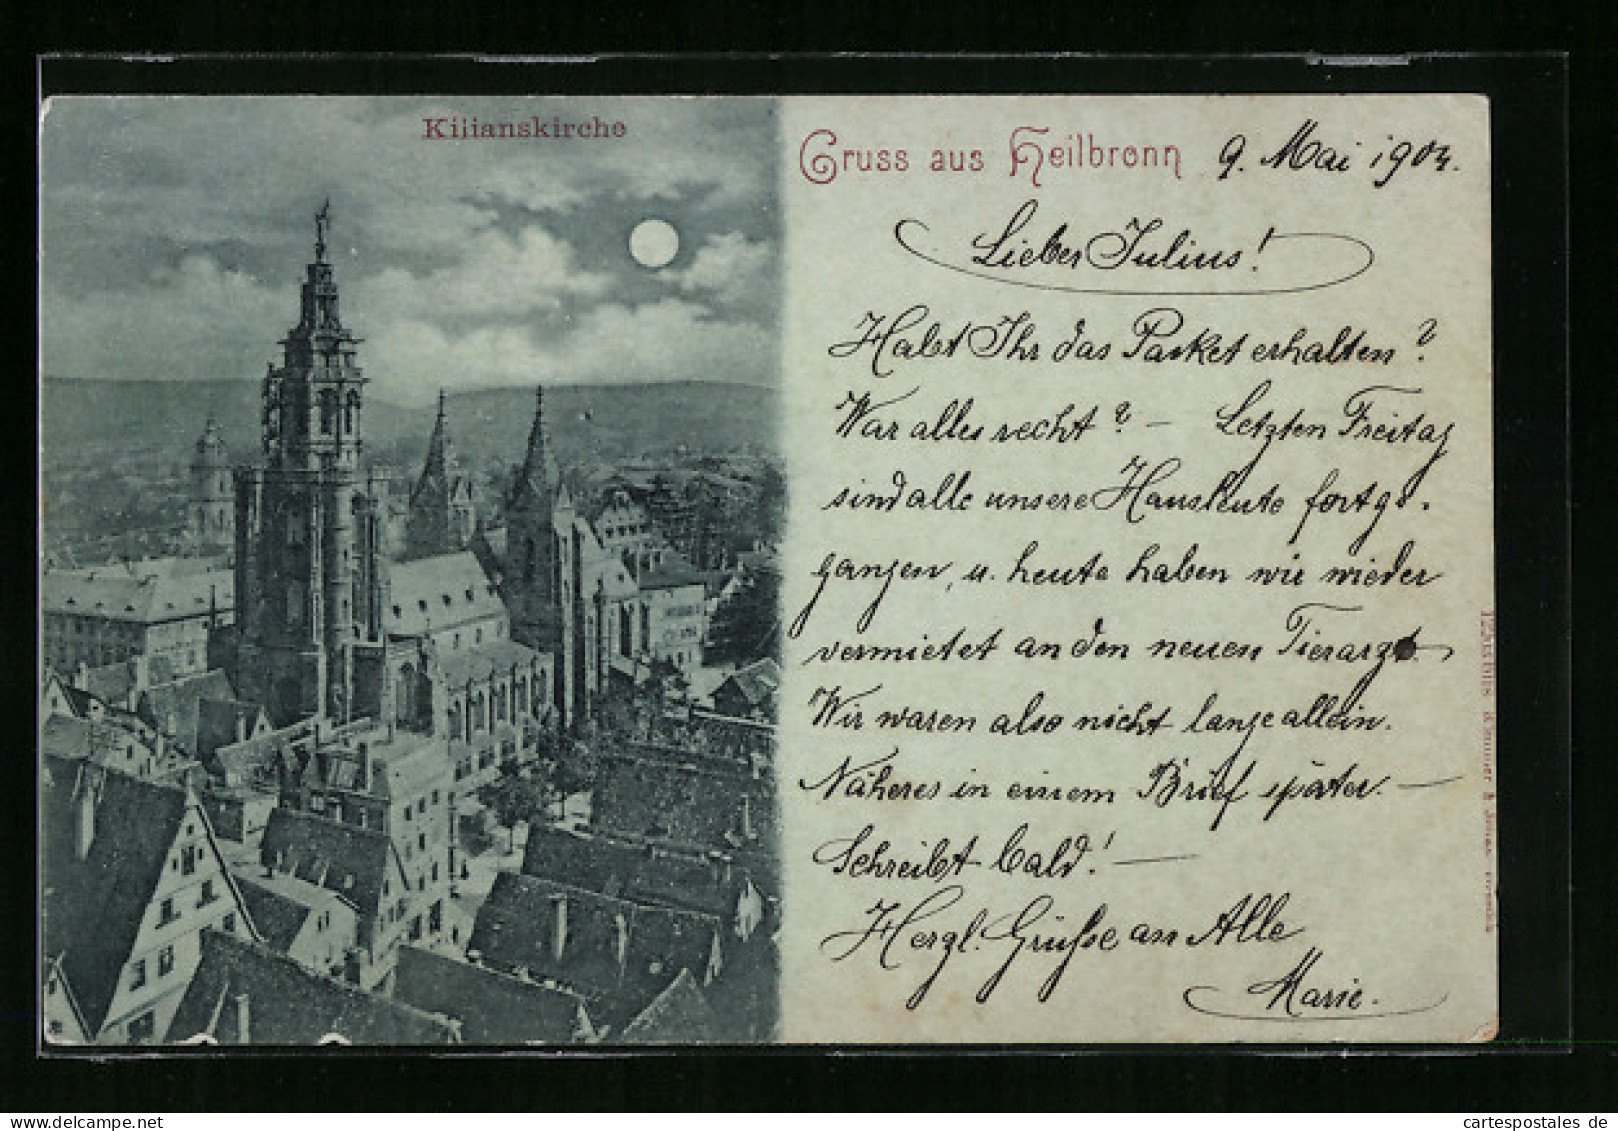 Kilianskirche
Gruss aus Heilbronn 9. Mai 1904.
Lieber Julius!
Habt Ihr das Packet erhalten?
War alles recht? — Letzten Freitag
sind alle unsere Hausleute fortge-
gangen, u. heute haben wir wieder
vermietet an den neuen Tierarzt.
Wir waren also nicht lange allein.
Näheres in einem Brief später. —
Schreibt bald! —
Herzl. Grüße an Alle
Marie.
cartespostales de
cartespostales.de